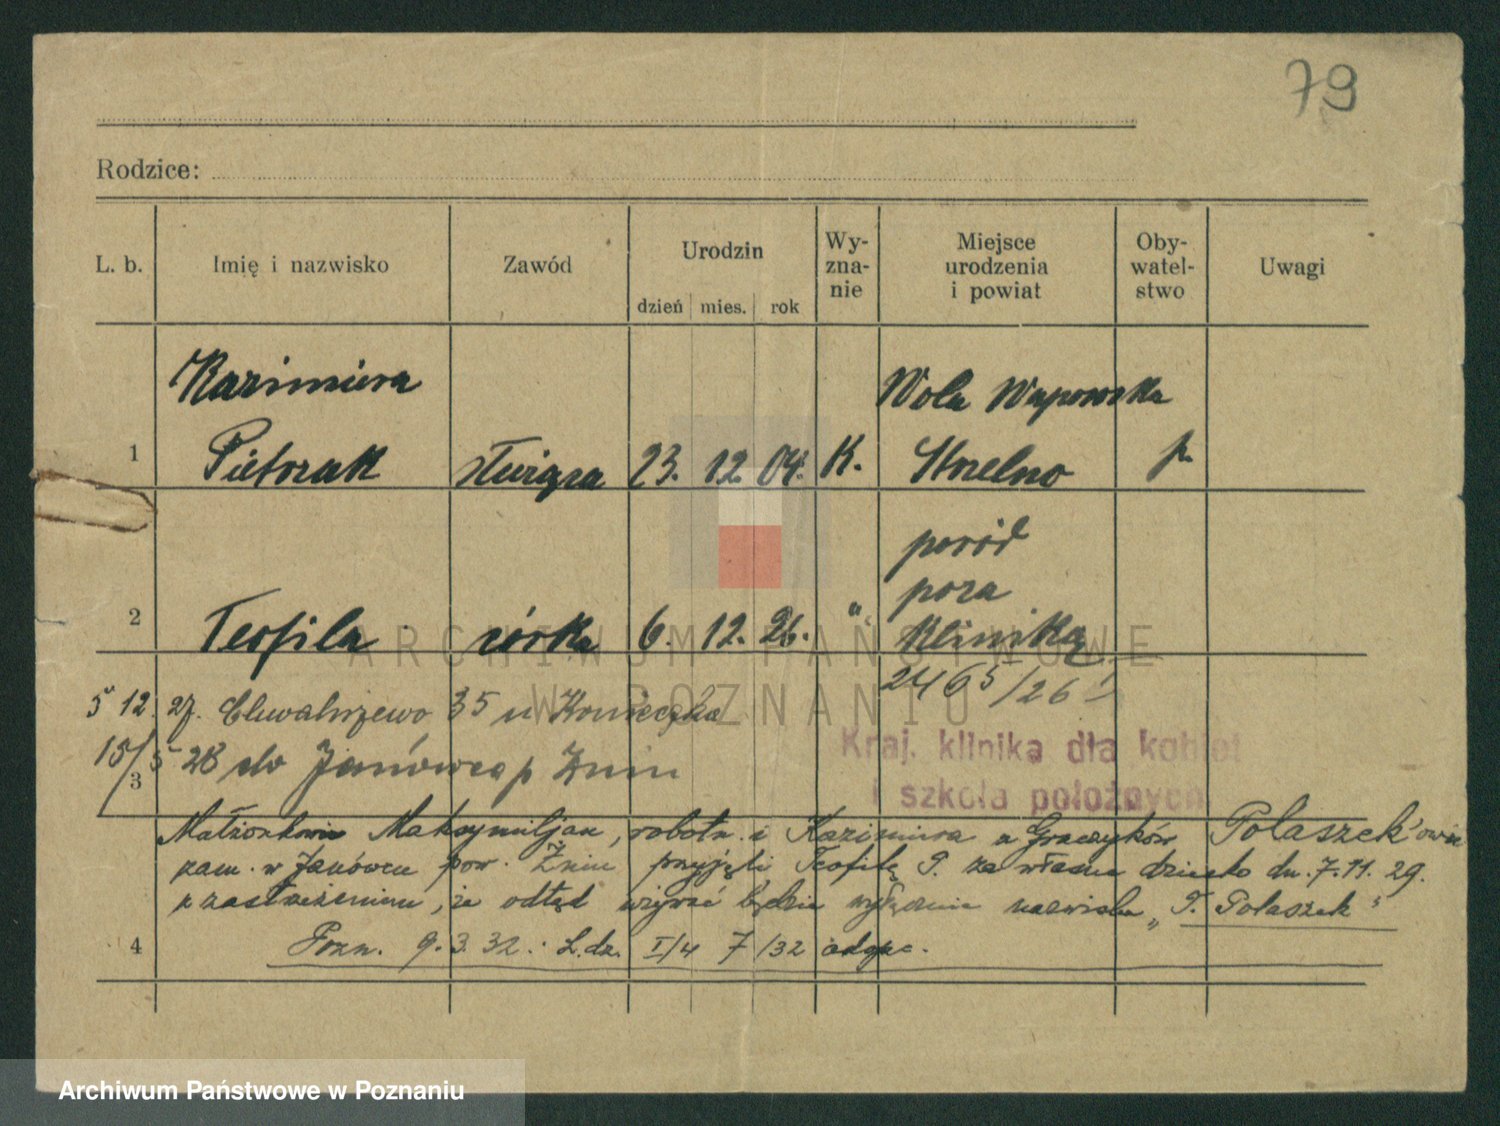 79
Rodzice:
L. b. Imię i nazwisko Zawód Urodzin dzień mies. rok Wy-zna-nie Miejsce urodzenia i powiat Oby-watel-stwo Uwagi
Kazimiera Wola Wapowska
1 Pietrzak służąca 23. 12. 04. K. Strzelno p.
poród
poza
2 Teofila córka 6. 12. 26. " Kliniką
2465/26
5 12. 27. Chwałszewo 35 u Konieczka
Kraj. klinika dla kobiet
15/5 28 do Janówca p Żnin
3 i szkoła położnych
Małżonkowie Maksymiljan, robotn. i Kazimiera z Graczyków Polaszek'owie
zam. w Janówcu pow. Żnin przyjęli Teofilę P. za własne dziecko dn. 7.11.29.
z zastrzeżeniem, że odtąd używać będzie wyłącznie nazwiska „T. Polaszek"
4 Pozn. 9.3.32. L.dz. I/4 7/32
ARCHIWUM PAŃSTWOWE
W POZNANIU
Archiwum Państwowe w Poznaniu